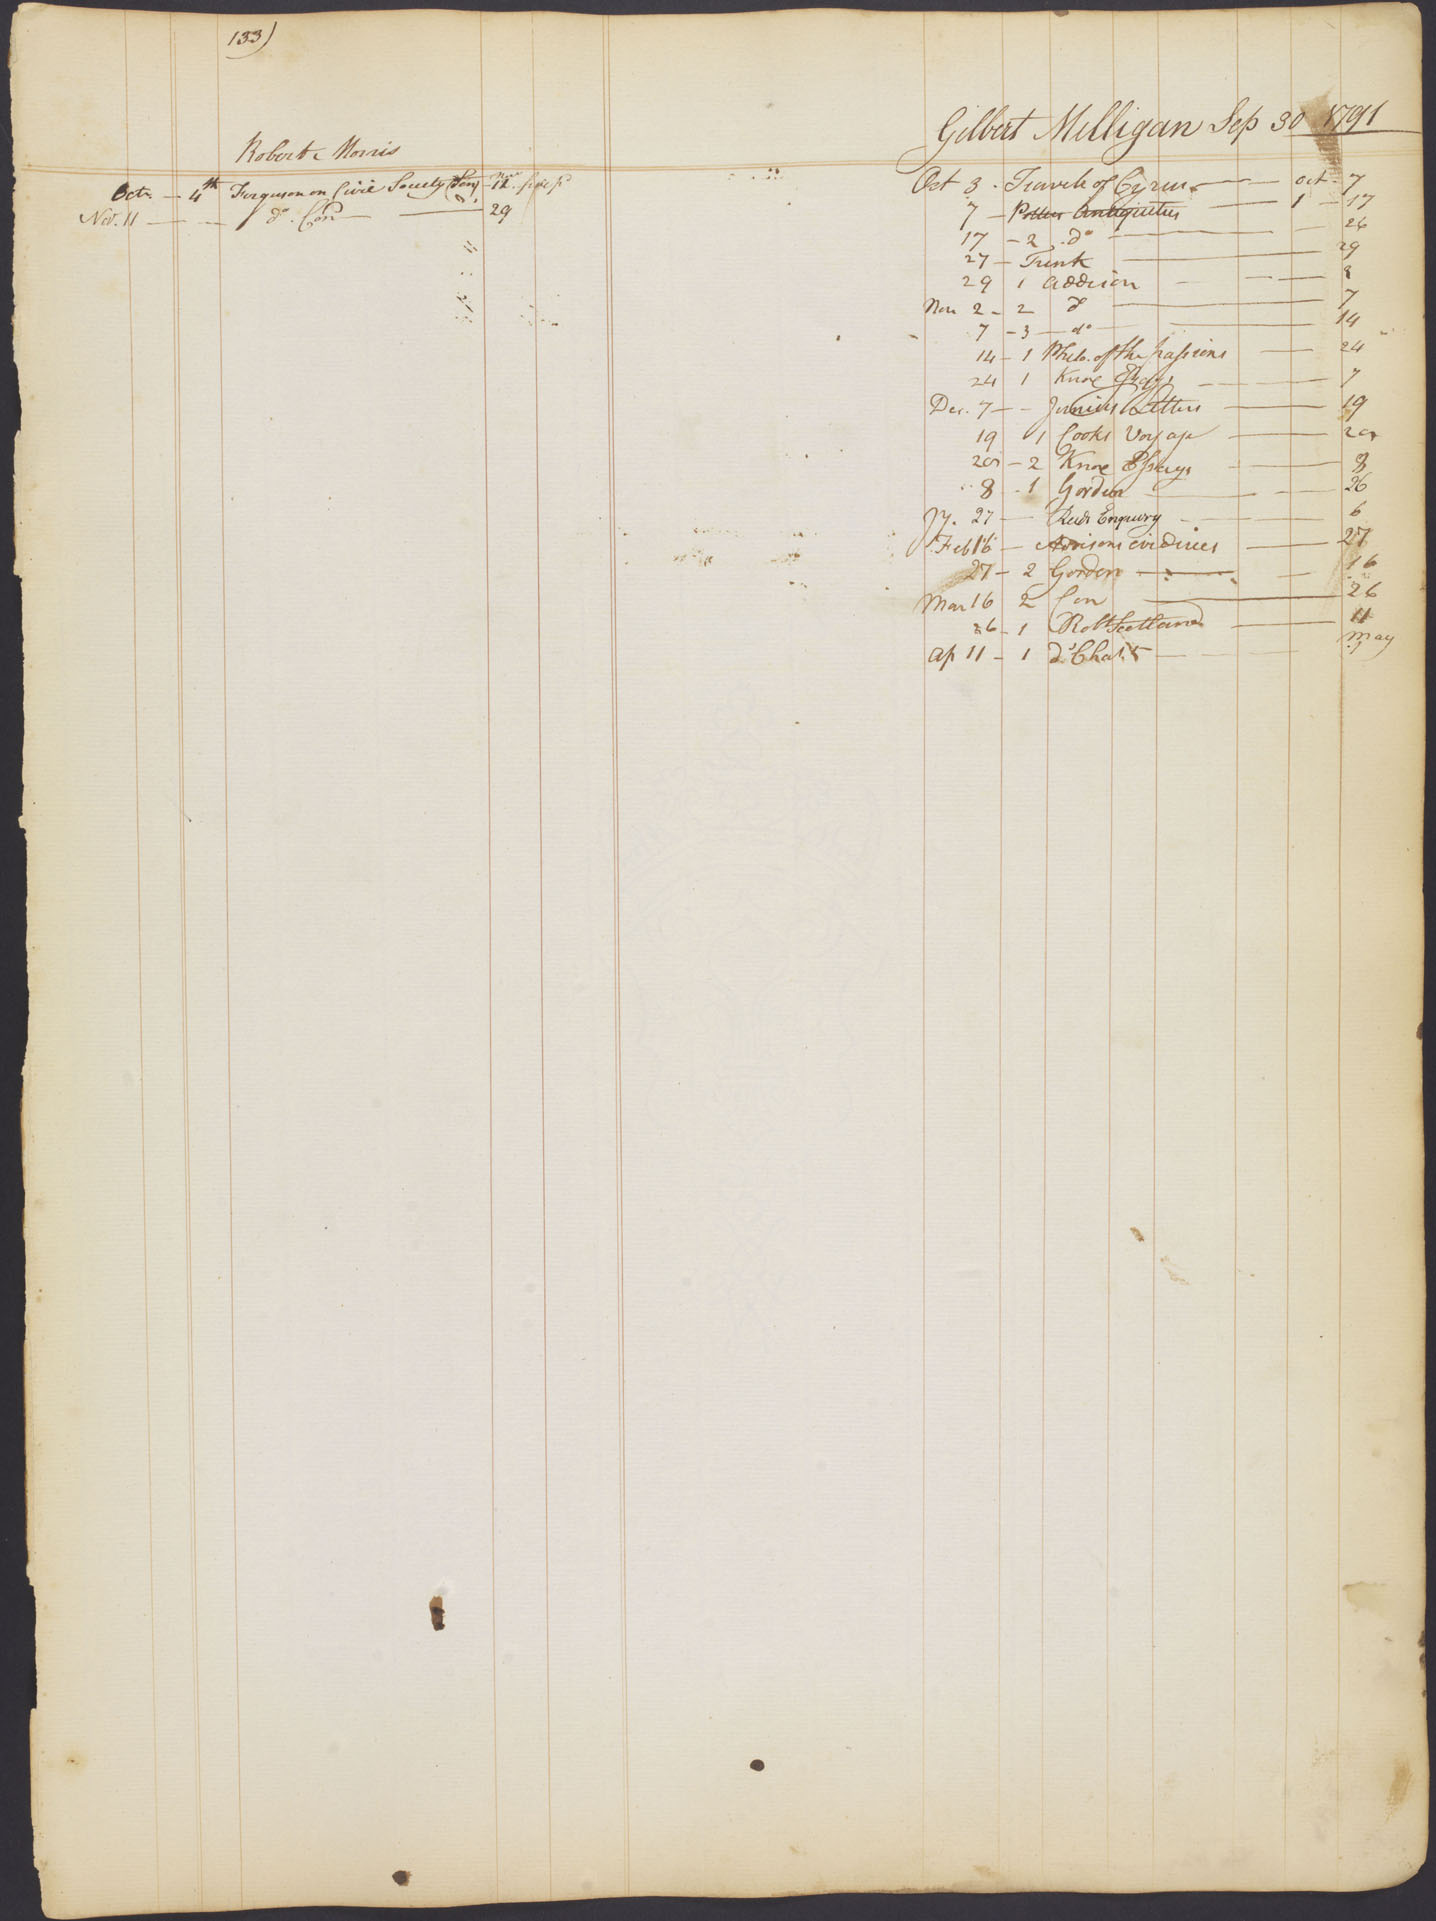 133)
Robert Morris
Octr. — 4th Ferguson on Civil Society Nov 11
Nov. 11 — — do. Con — 29
Gilbert Milligan Sep 30 1791
Oct 3 - Travels of Cyrus — — Oct - 7
7 — Potters Antiquities — 1 — 17
17 — 2 do — — 26
27 — Trenk — 29
29 1 Addison — — 2
Nov 2 — 2 do — 7
7 — 3 — do — 14
14 — 1 Philo. of the passions — 24
24 1 Knox Essays — 7
Dec. 7 — - Junius Letters — 19
19 1 Cooks Voyage — 20
20 — 2 Knox Essays — 8
8 - 1 Gordon — — 26
Jy. 27 — Reids Enquiry — 6
Feb 16 — Addisons evidences — 27
27 — 2 Gordon — — 16
Mar 16 2 Con — 26
26 - 1 Robt Scotland — 11
Ap 11 — 1 do Chas. 5 — May